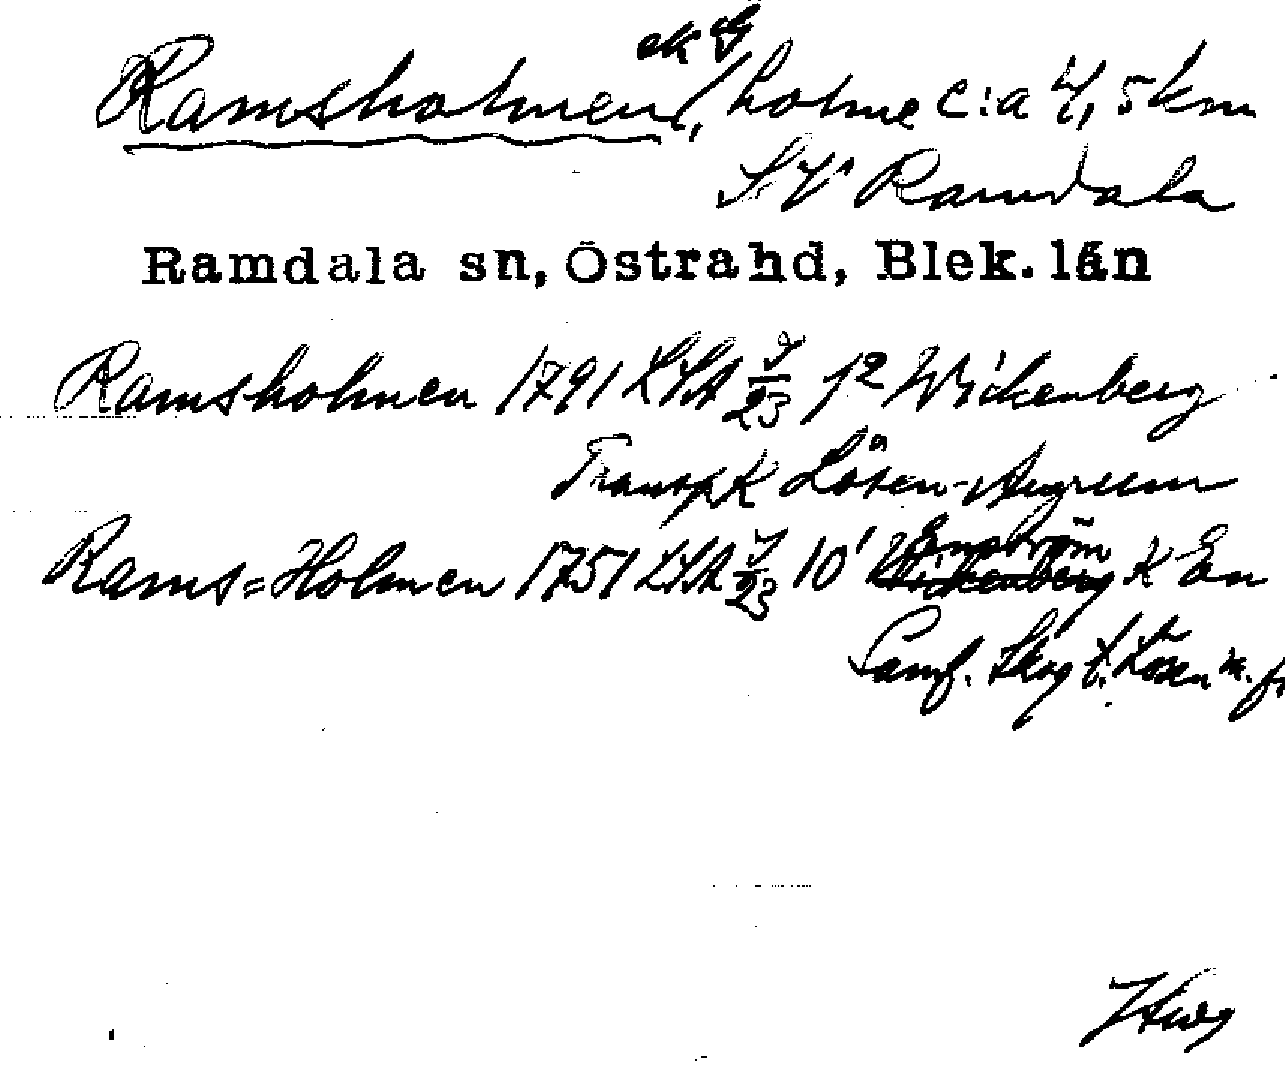 Ramsholmen, ek G holme c:a 4,5 km
SV Ramdala
Ramdala sn, Östra hd, Blek. län
Ramsholmen 1791 LSA J/23 1² Wickenberg
Transp K Lösen-Augerum
Rams=Holmen 1751 LSA J/23 10¹ Enström K En
Samf. Skog t. Lösen m. fl